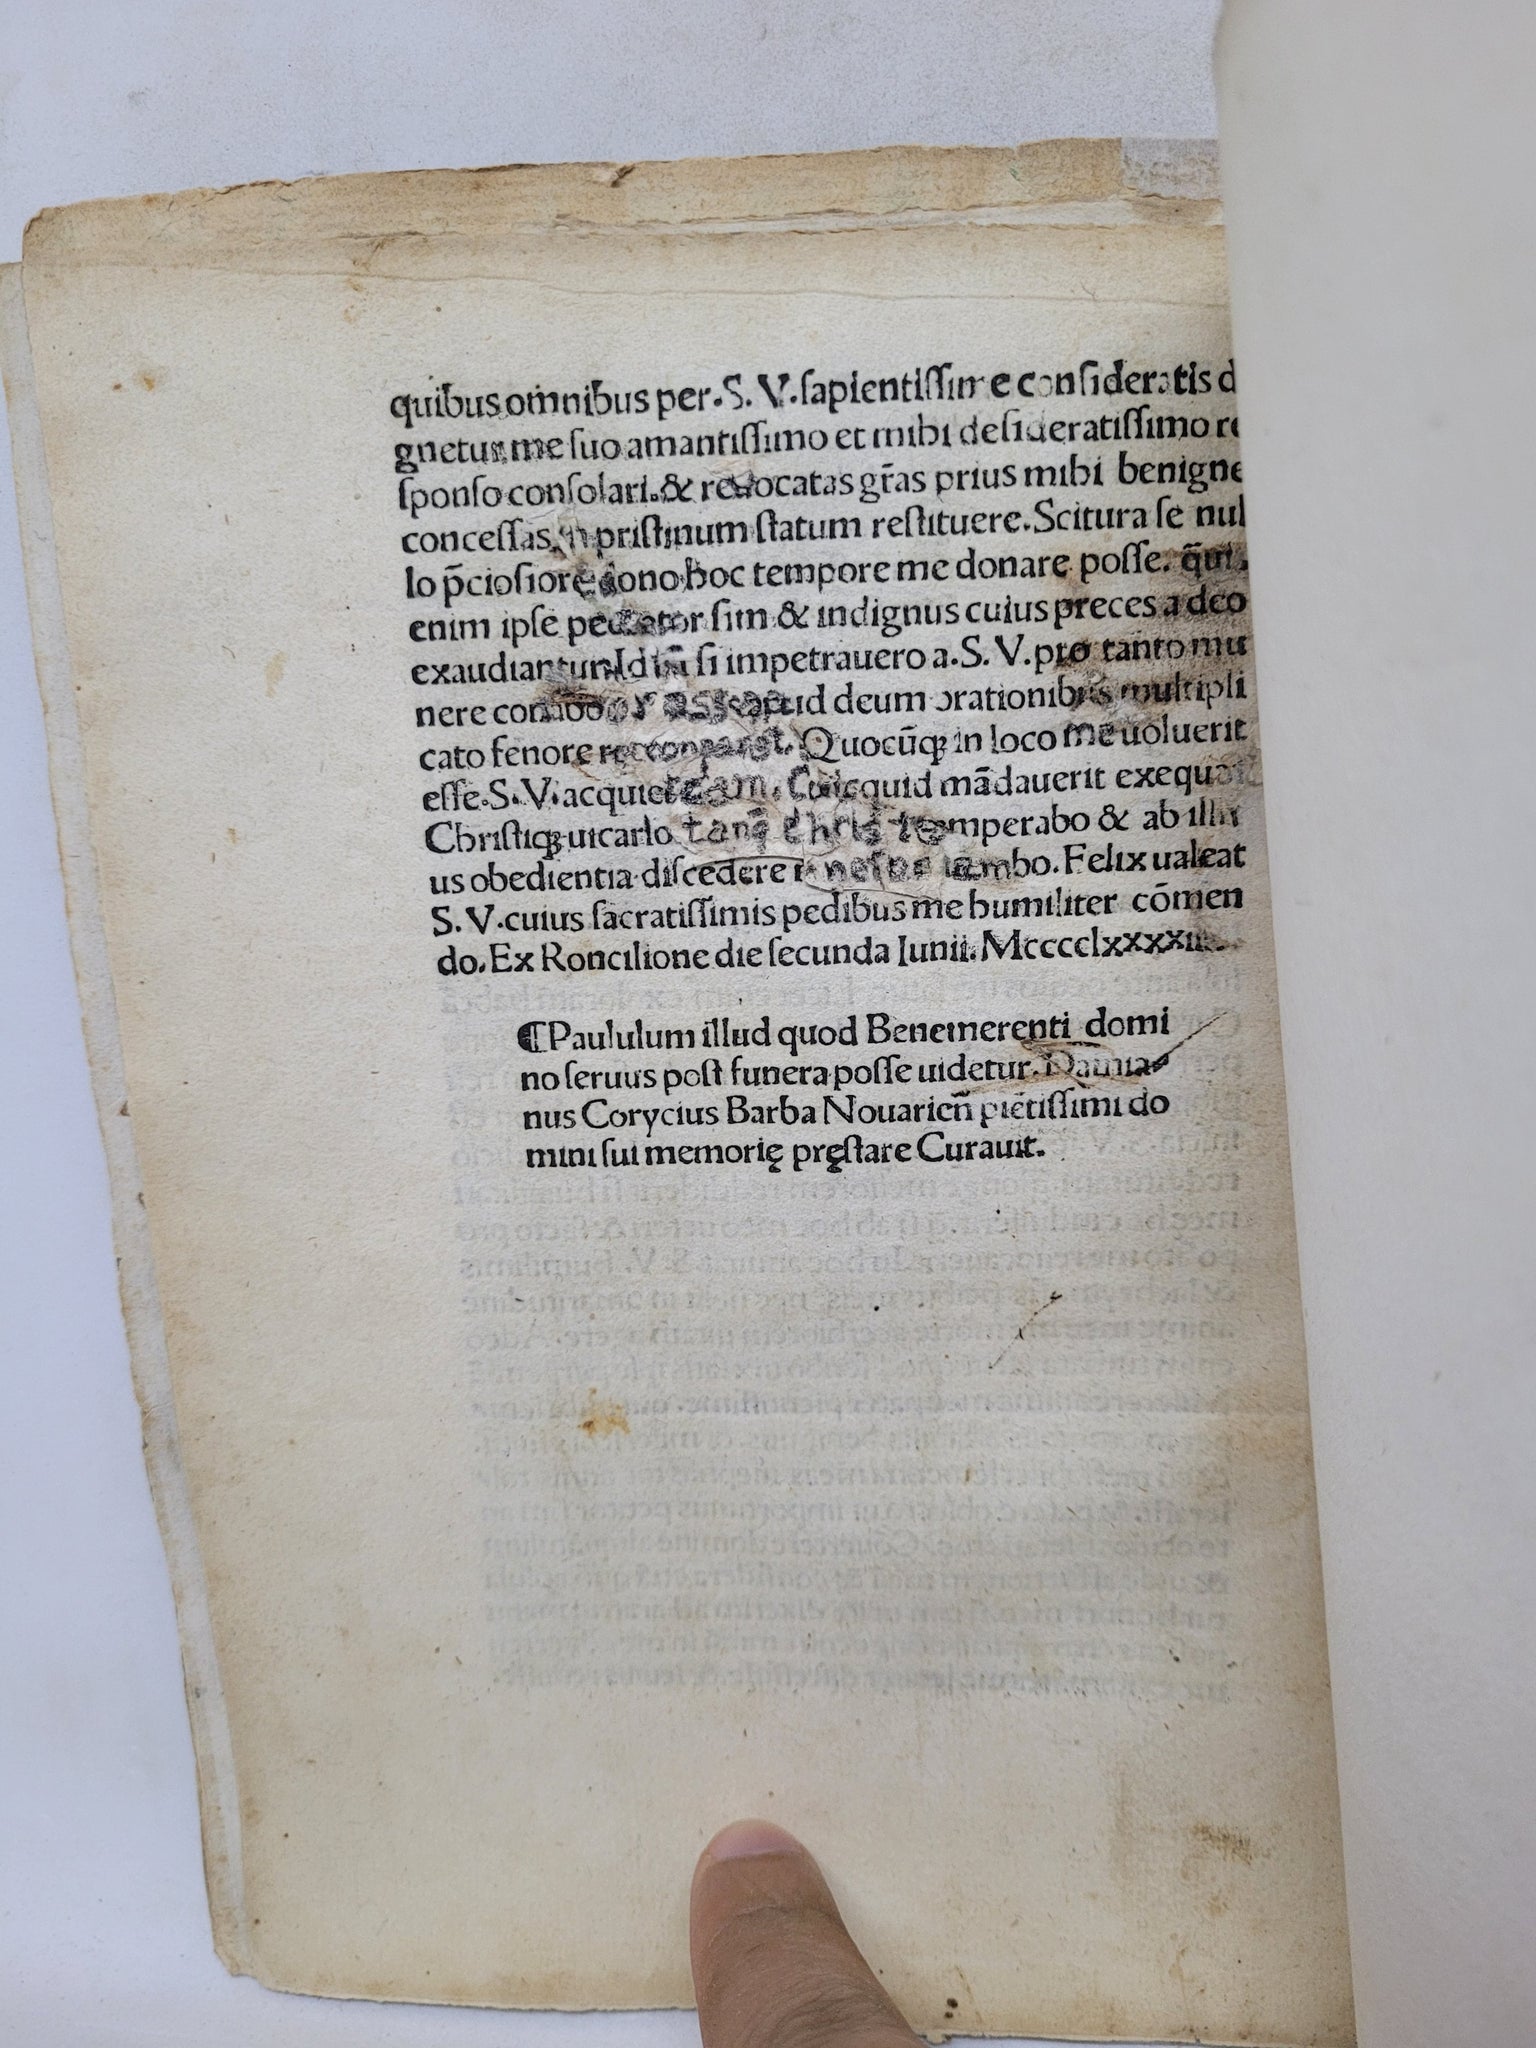 quibus omnibus per. S. V. sapientissime consideratis d
gnetur me suo amantissimo et mihi desideratissimo re
sponso consolari. & reuocatas gr̃as prius mihi benigne
concessas in pristinum statum restituere. Scitura se nul
lo p̃ciosiore dono hoc tempore me donare posse. q̃uis
enim ipse peccator sim & indignus cuius preces a deo
exaudiantur. Id tñ si impetrauero a. S. V. pro tanto mu
nere apud deum orationibus multipli
cato fenore Quocũq; in loco me uoluerit
esse. S. V. acquiescam. Quicquid mãdauerit exequar
Christiq; uicario tanq̃ Christo temperabo & ab illi
us obedientia discedere nefas iambo. Felix ualeat
S. V. cuius sacratissimis pedibus me humiliter cõmen
do. Ex Roncilione die secunda Iunii.
¶ Paululum illud quod Benemerenti domi
no seruus post funera posse uidetur. Damia
nus Corycius Barba Nouarieñ pietissimi do
mini sui memorię pręstare Curauit.